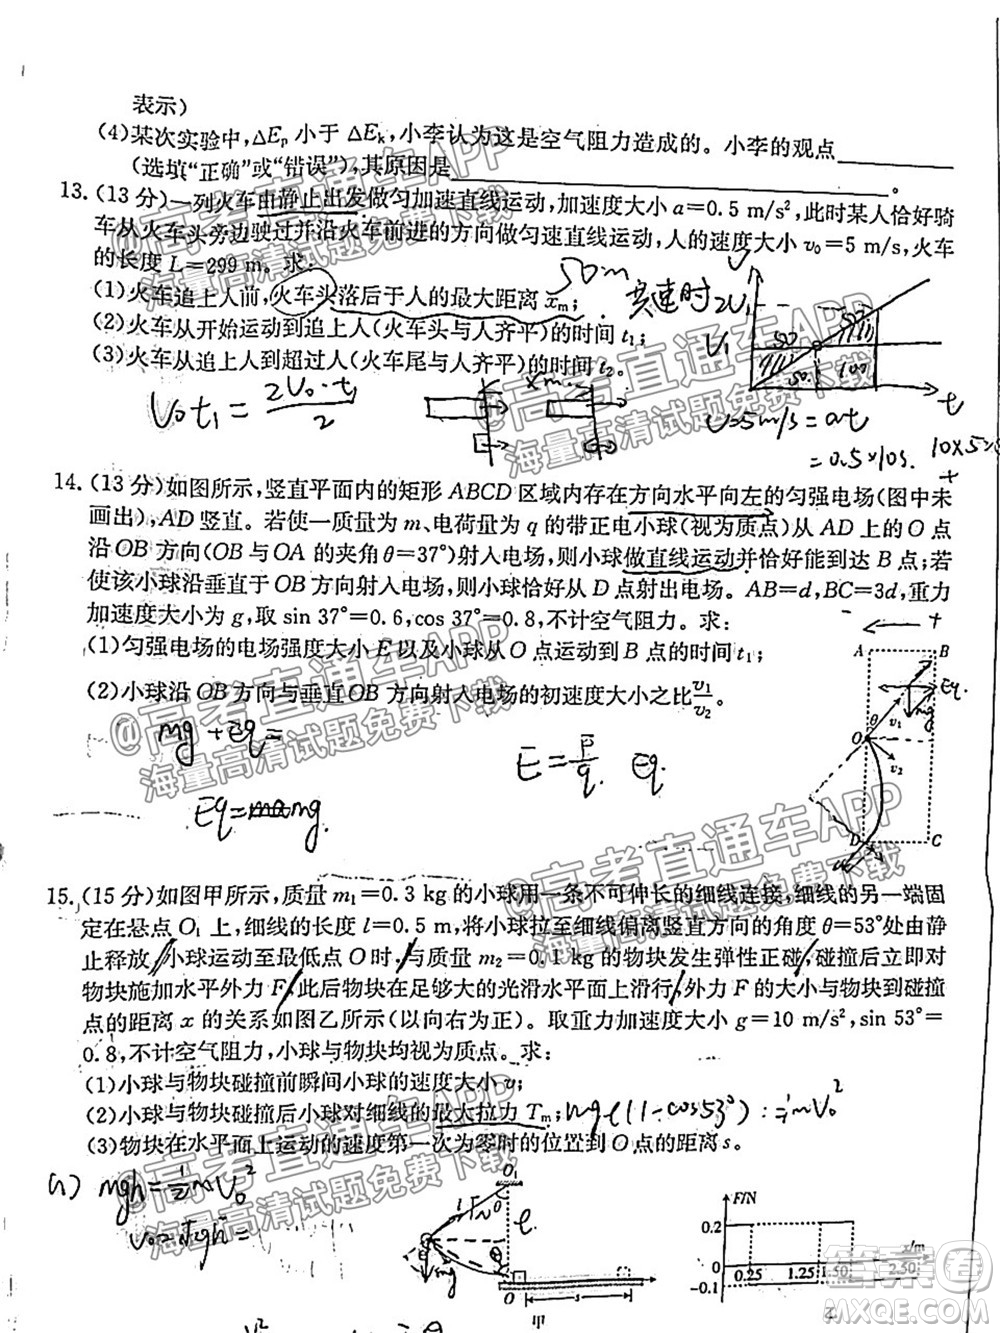 表示)
(4)某次实验中,ΔEp 小于 ΔEk,小李认为这是空气阻力造成的。小李的观点________
(选填“正确”或“错误”),其原因是________________________________。
13.(13 分)一列火车由静止出发做匀加速直线运动,加速度大小 a=0.5 m/s²,此时某人恰好骑
车从火车头旁边驶过并沿火车前进的方向做匀速直线运动,人的速度大小 v₀=5 m/s,火车
的长度 L=299 m。求:
(1)火车追上人前,火车头落后于人的最大距离 xm;
50m
(2)火车从开始运动到追上人(火车头与人齐平)的时间 t₁;
(3)火车从追上到超过人(火车尾与人齐平)的时间 t₂。
共速时 2V₁
V₁
50
50
100
t
V₀t₁ = 2V₀·t₁/2
xm
V=5m/s=at
=0.5×10s.
14.(13 分)如图所示,竖直平面内的矩形 ABCD 区域内存在方向水平向左的匀强电场(图中未
画出),AD 竖直。若使一质量为 m、电荷量为 q 的带正电小球(视为质点)从 AD 上的 O 点
沿 OB 方向(OB 与 OA 的夹角 θ=37°)射入电场,则小球做直线运动并恰好能到达 B 点;若
使该小球沿垂直于 OB 方向射入电场,则小球恰好从 D 点射出电场。AB=d,BC=3d,重力
加速度大小为 g,取 sin 37°=0.6,cos 37°=0.8,不计空气阻力。求:
(1)匀强电场的电场强度大小 E 以及小球从 O 点运动到 B 点的时间 t₁;
(2)小球沿 OB 方向与垂直 OB 方向射入电场的初速度大小之比 v₁/v₂。
A
B
Eq.
mg
θ
v₁
O
v₂
D
C
mg+Eq=
E=F/q Eq.
Eq=mg
15.(15 分)如图甲所示,质量 m₁=0.3 kg 的小球用一条不可伸长的细线连接,细线的另一端固
定在悬点 O₁ 上,细线的长度 l=0.5 m,将小球拉至细线偏离竖直方向的角度 θ=53°处由静
止释放,小球运动至最低点 O 时,与质量 m₂=0.1 kg 的物块发生弹性正碰,碰撞后立即对
物块施加水平外力 F,此后物块在足够大的光滑水平面上滑行,外力 F 的大小与物块到碰撞
点的距离 x 的关系如图乙所示(以向右为正)。取重力加速度大小 g=10 m/s²,sin 53°=
0.8,不计空气阻力,小球与物块均视为质点。求:
(1)小球与物块碰撞前瞬间小球的速度大小 v;
(2)小球与物块碰撞后小球对细线的最大拉力 Tm;
mgl(1-cos53°)=½mV₀²
(3)物块在水平面上运动的速度第一次为零时的位置到 O 点的距离 s。
(1) mgh=½mV₀²
O₁
l
θ
mg
O
s
甲
F/N
0.2
0
-0.1
0.25
1.25
1.50
2.50
x/m
乙
@高考直通车APP
海量高清试题免费下载
@高考直通车APP
海量高清试题免费下载
@高考直通车APP
海量高清试题免费下载
@高考直通车APP
海量高清试题免费下载
@高考直通车APP
海量高清试题免费下载
答案圈
MXQE.COM